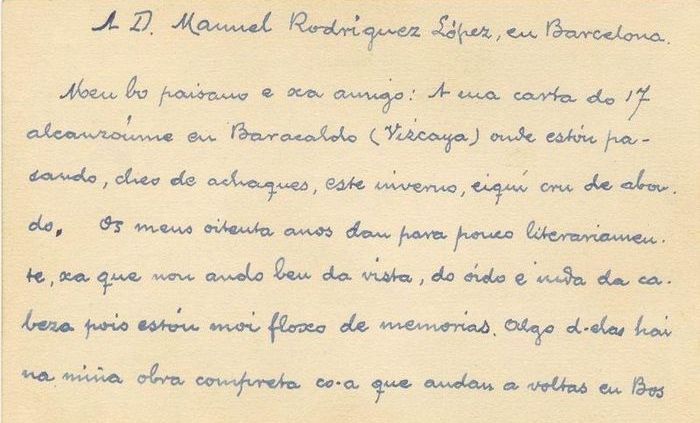 A D. Manuel Rodríguez López, en Barcelona.
Meu bo paisano e xa amigo: A sua carta do 17
alcanzóume en Baracaldo (Vizcaya) onde estóu pa-
sando, cheo de achaques, este inverno, eiquí cru de abon-
do. Os meus oitenta anos dan para pouco literariamen-
te, xa que non ando ben da vista, do óido e inda da ca-
beza pois estóu moi floxo de memorias. Algo d-elas hai
na miña obra compreta co-a que andan a voltas en Bos